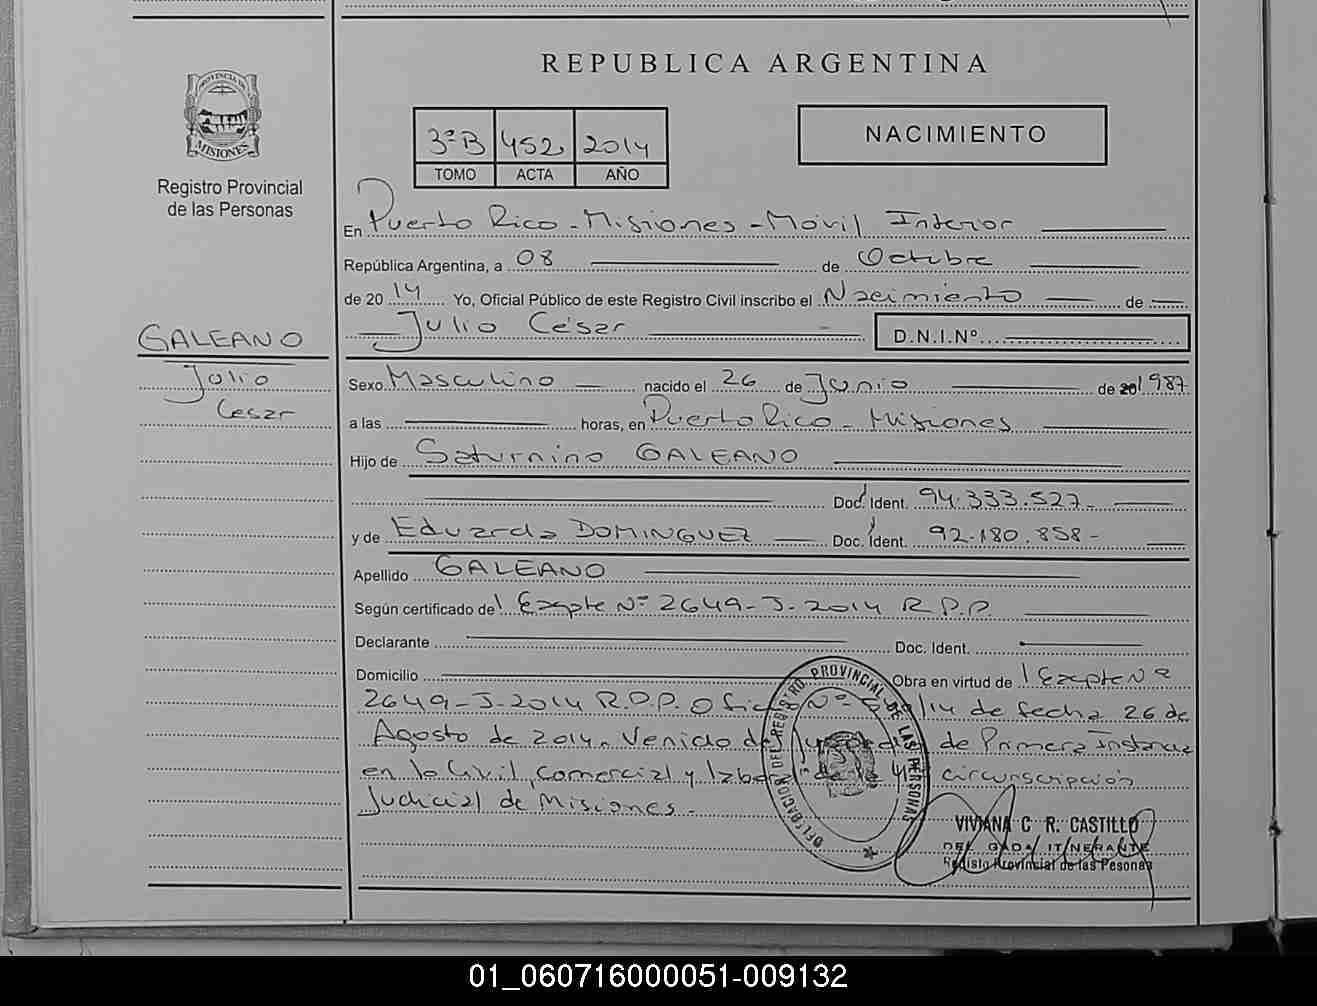 REPUBLICA ARGENTINA
PROVINCIA DE
MISIONES
Registro Provincial
de las Personas
3ºB 452 2014
TOMO ACTA AÑO
NACIMIENTO
En Puerto Rico - Misiones - Móvil Interior
República Argentina, a 08 de Octubre
de 2014 Yo, Oficial Público de este Registro Civil inscribo el Nacimiento de
Julio César D.N.I.Nº
GALEANO
Julio
Cesar
Sexo Masculino nacido el 26 de Junio de 1987
a las horas, en Puerto Rico - Misiones
Hijo de Saturnino GALEANO
Doc. Ident. 94.333.527-
y de Eduarda DOMINGUEZ Doc. Ident. 92.180.858-
Apellido GALEANO
Según certificado de Expte Nº 2649-J-2014 R.P.P.
Declarante Doc. Ident.
Domicilio Obra en virtud de Expte Nº
2649-J-2014 R.P.P. Oficio Nº /14 de fecha 26 de
Agosto de 2014. Venido del Juzgado de Primera Instancia
en lo Civil, Comercial y Laboral de la 4º circunscripción
Judicial de Misiones.-
DELEGACION DEL REGISTRO PROVINCIAL DE LAS PERSONAS
VIVIANA C R. CASTILLO
DELEGADA ITINERANTE
Registro Provincial de las Pesonas
01_060716000051-009132